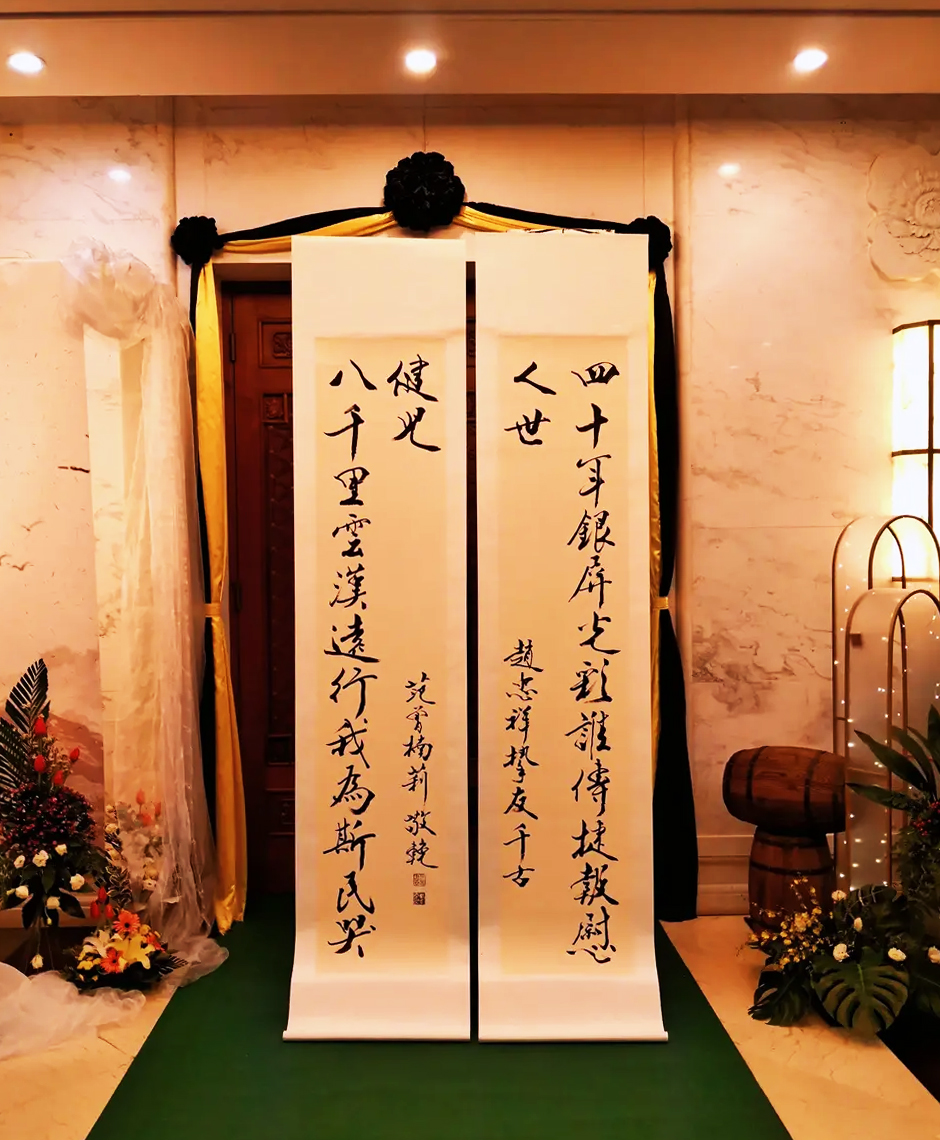 四十年銀屏光彩誰傳捷報慰
人世
趙忠祥摯友千古
八千里雲漢遠行我為斯民哭
健兒
范曾楠莉 敬輓